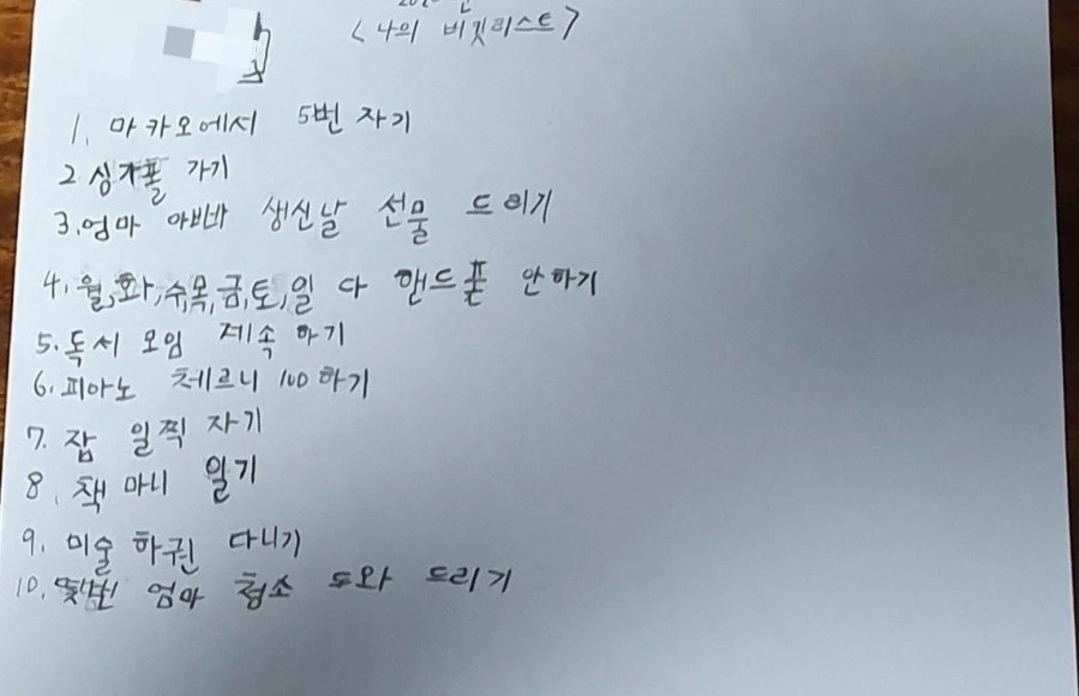 <나의 버킷리스트>
1. 마카오에서 5번 자기
2 싱가폴 가기
3. 엄마 아빠 생신날 선물 드리기
4. 월,화,수,목,금,토,일 다 핸드폰 안하기
5. 독서 모임 계속 하기
6. 피아노 체르니 100 하기
7. 잠 일찍 자기
8. 책 마니 읽기
9. 미술 하권 다니기
10. 몇번 엄마 청소 도와 드리기